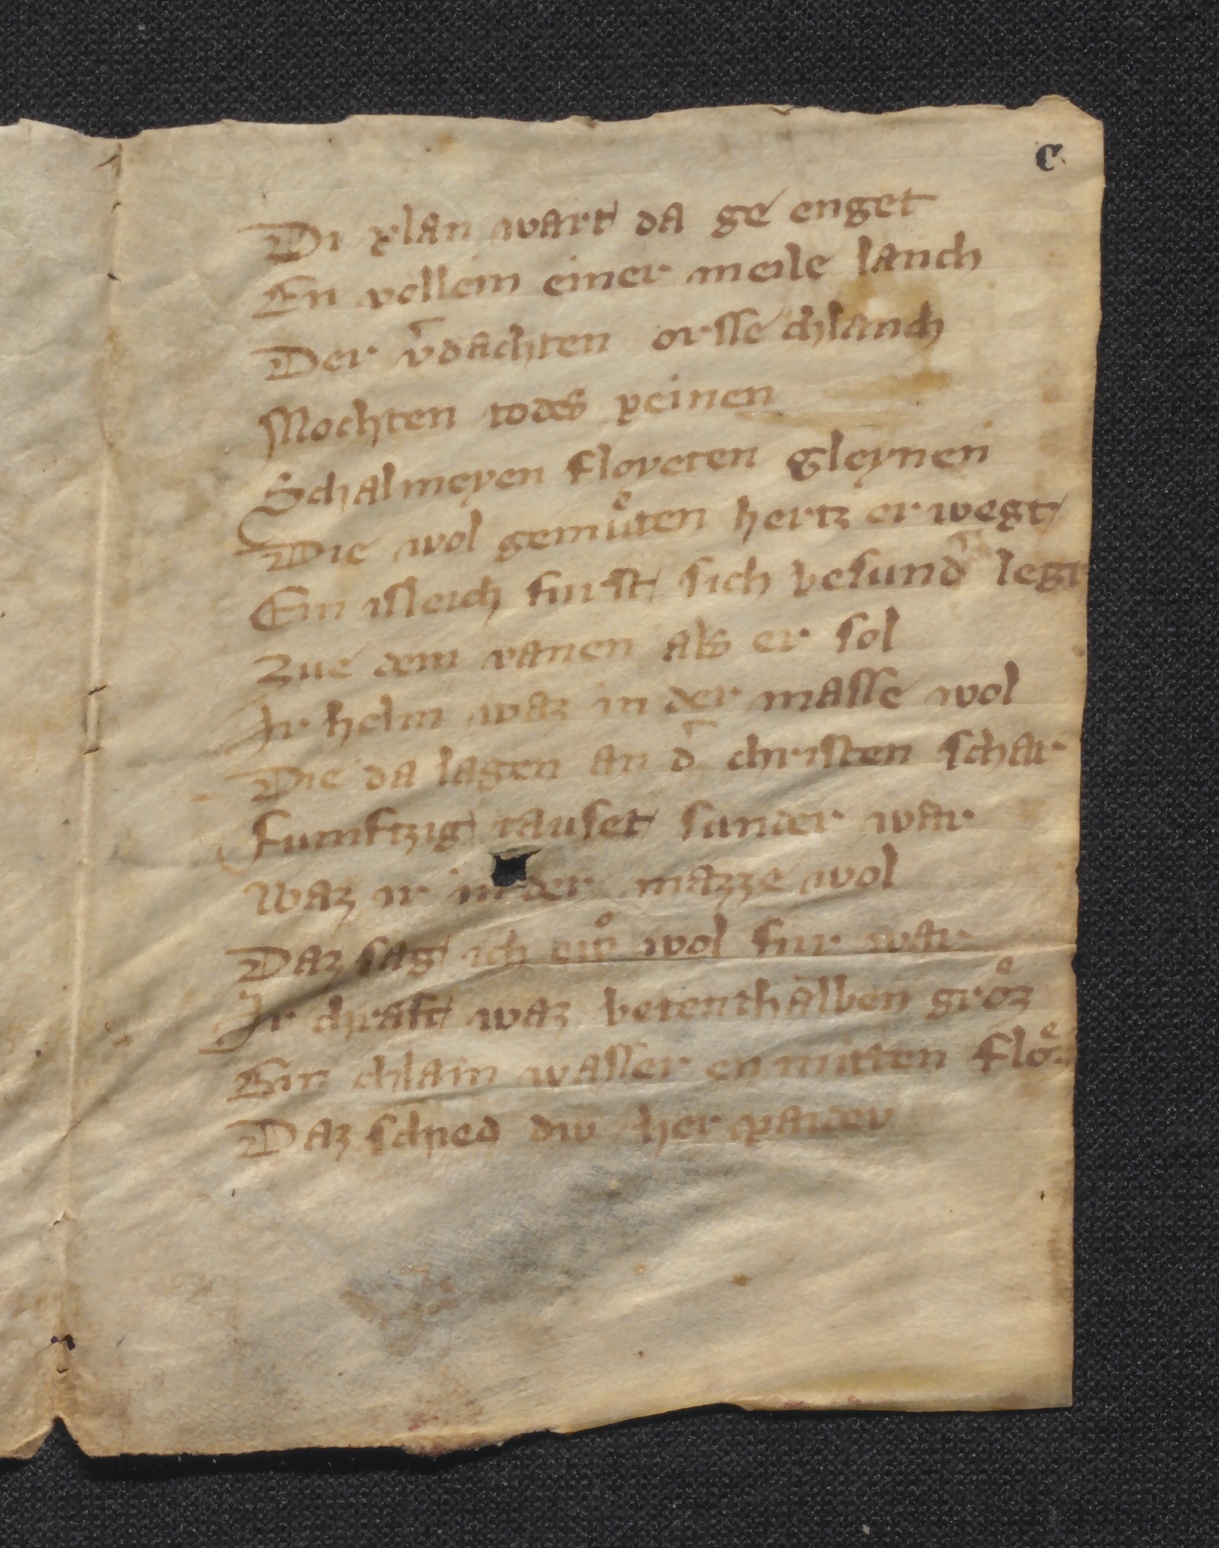 C
Di plan wart da ge enget
En vollem einer meile lanch
Der v̄dachten orsse chlanch
Mochten todes peinen
Schalmeyen floyeten gleynen
Die wol gemuͤten hertz er wegt
Ein isleich furst sich besund̄ legt
Zue dem vanen als er sol
Ir helm waz in der masse wol
Die da lagen an d̄ christen schar
Fumftzig tauset sunder war
Waz ir in der mazze wol
Daz sag ich eẘ wol fur war
Ir chraft waz betenthalben groͤz
Ein chlain wasser en mitten floͤz
Daz schied diw her paider